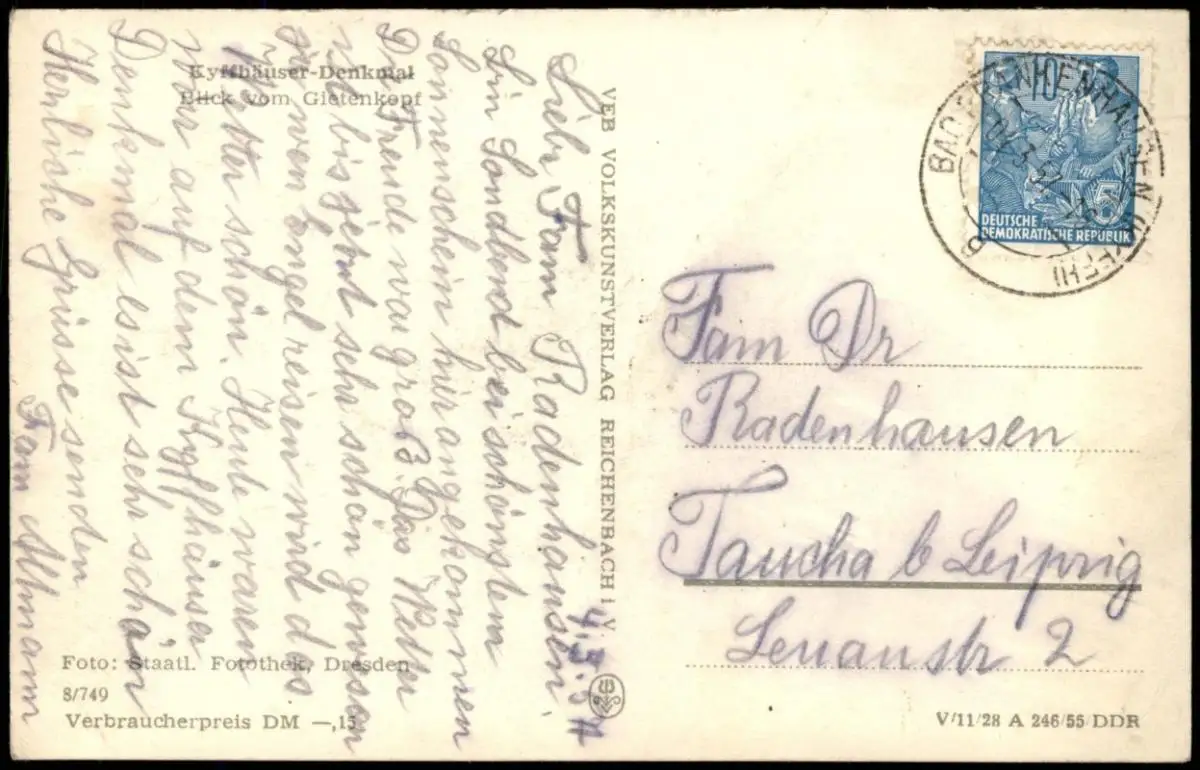 Kyffhäuser-Denkmal
Blick vom Gietenkopf
Liebe Fam Radenhausen!
4.3.57
Sin Sontbend bei schönstem
Sonnenschein hir angekommen
Die Freude war groß. Das Wetter
ist bis jetzt sehr schön gewesen
wen Engel reisen wird das
Wetter schön. Heute waren
Wir auf dem Kyffhäuser
Denkmal es ist sehr schön
Herzliche Grüsse senden
Fam Altmann
Foto: Staatl. Fotothek, Dresden
8/749
Verbraucherpreis DM —,15
VEB VOLKSKUNSTVERLAG REICHENBACH i. V.
10
5
DEUTSCHE
DEMOKRATISCHE REPUBLIK
BAD FRANKENHAUSEN (KYFFH)
b
Fam Dr
Radenhausen
Taucha b Leipzig
Lenaustr 2
V/11/28 A 246/55 DDR